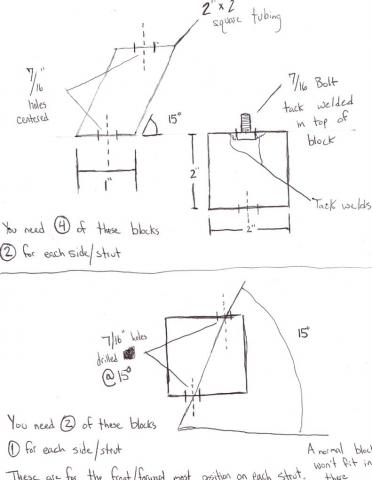 2" x 2
square tubing
7/16"
holes
centered
15°
7/16 Bolt
tack welded
in top of
block
1"
2"
Tack welds
2"
You need ④ of these blocks
② for each side/strut
7/16" holes
drilled
@ 15°
15°
You need ② of these blocks
① for each side/strut
A normal bloc
won't fit in
These are for the front/forward most position on each strut.
these